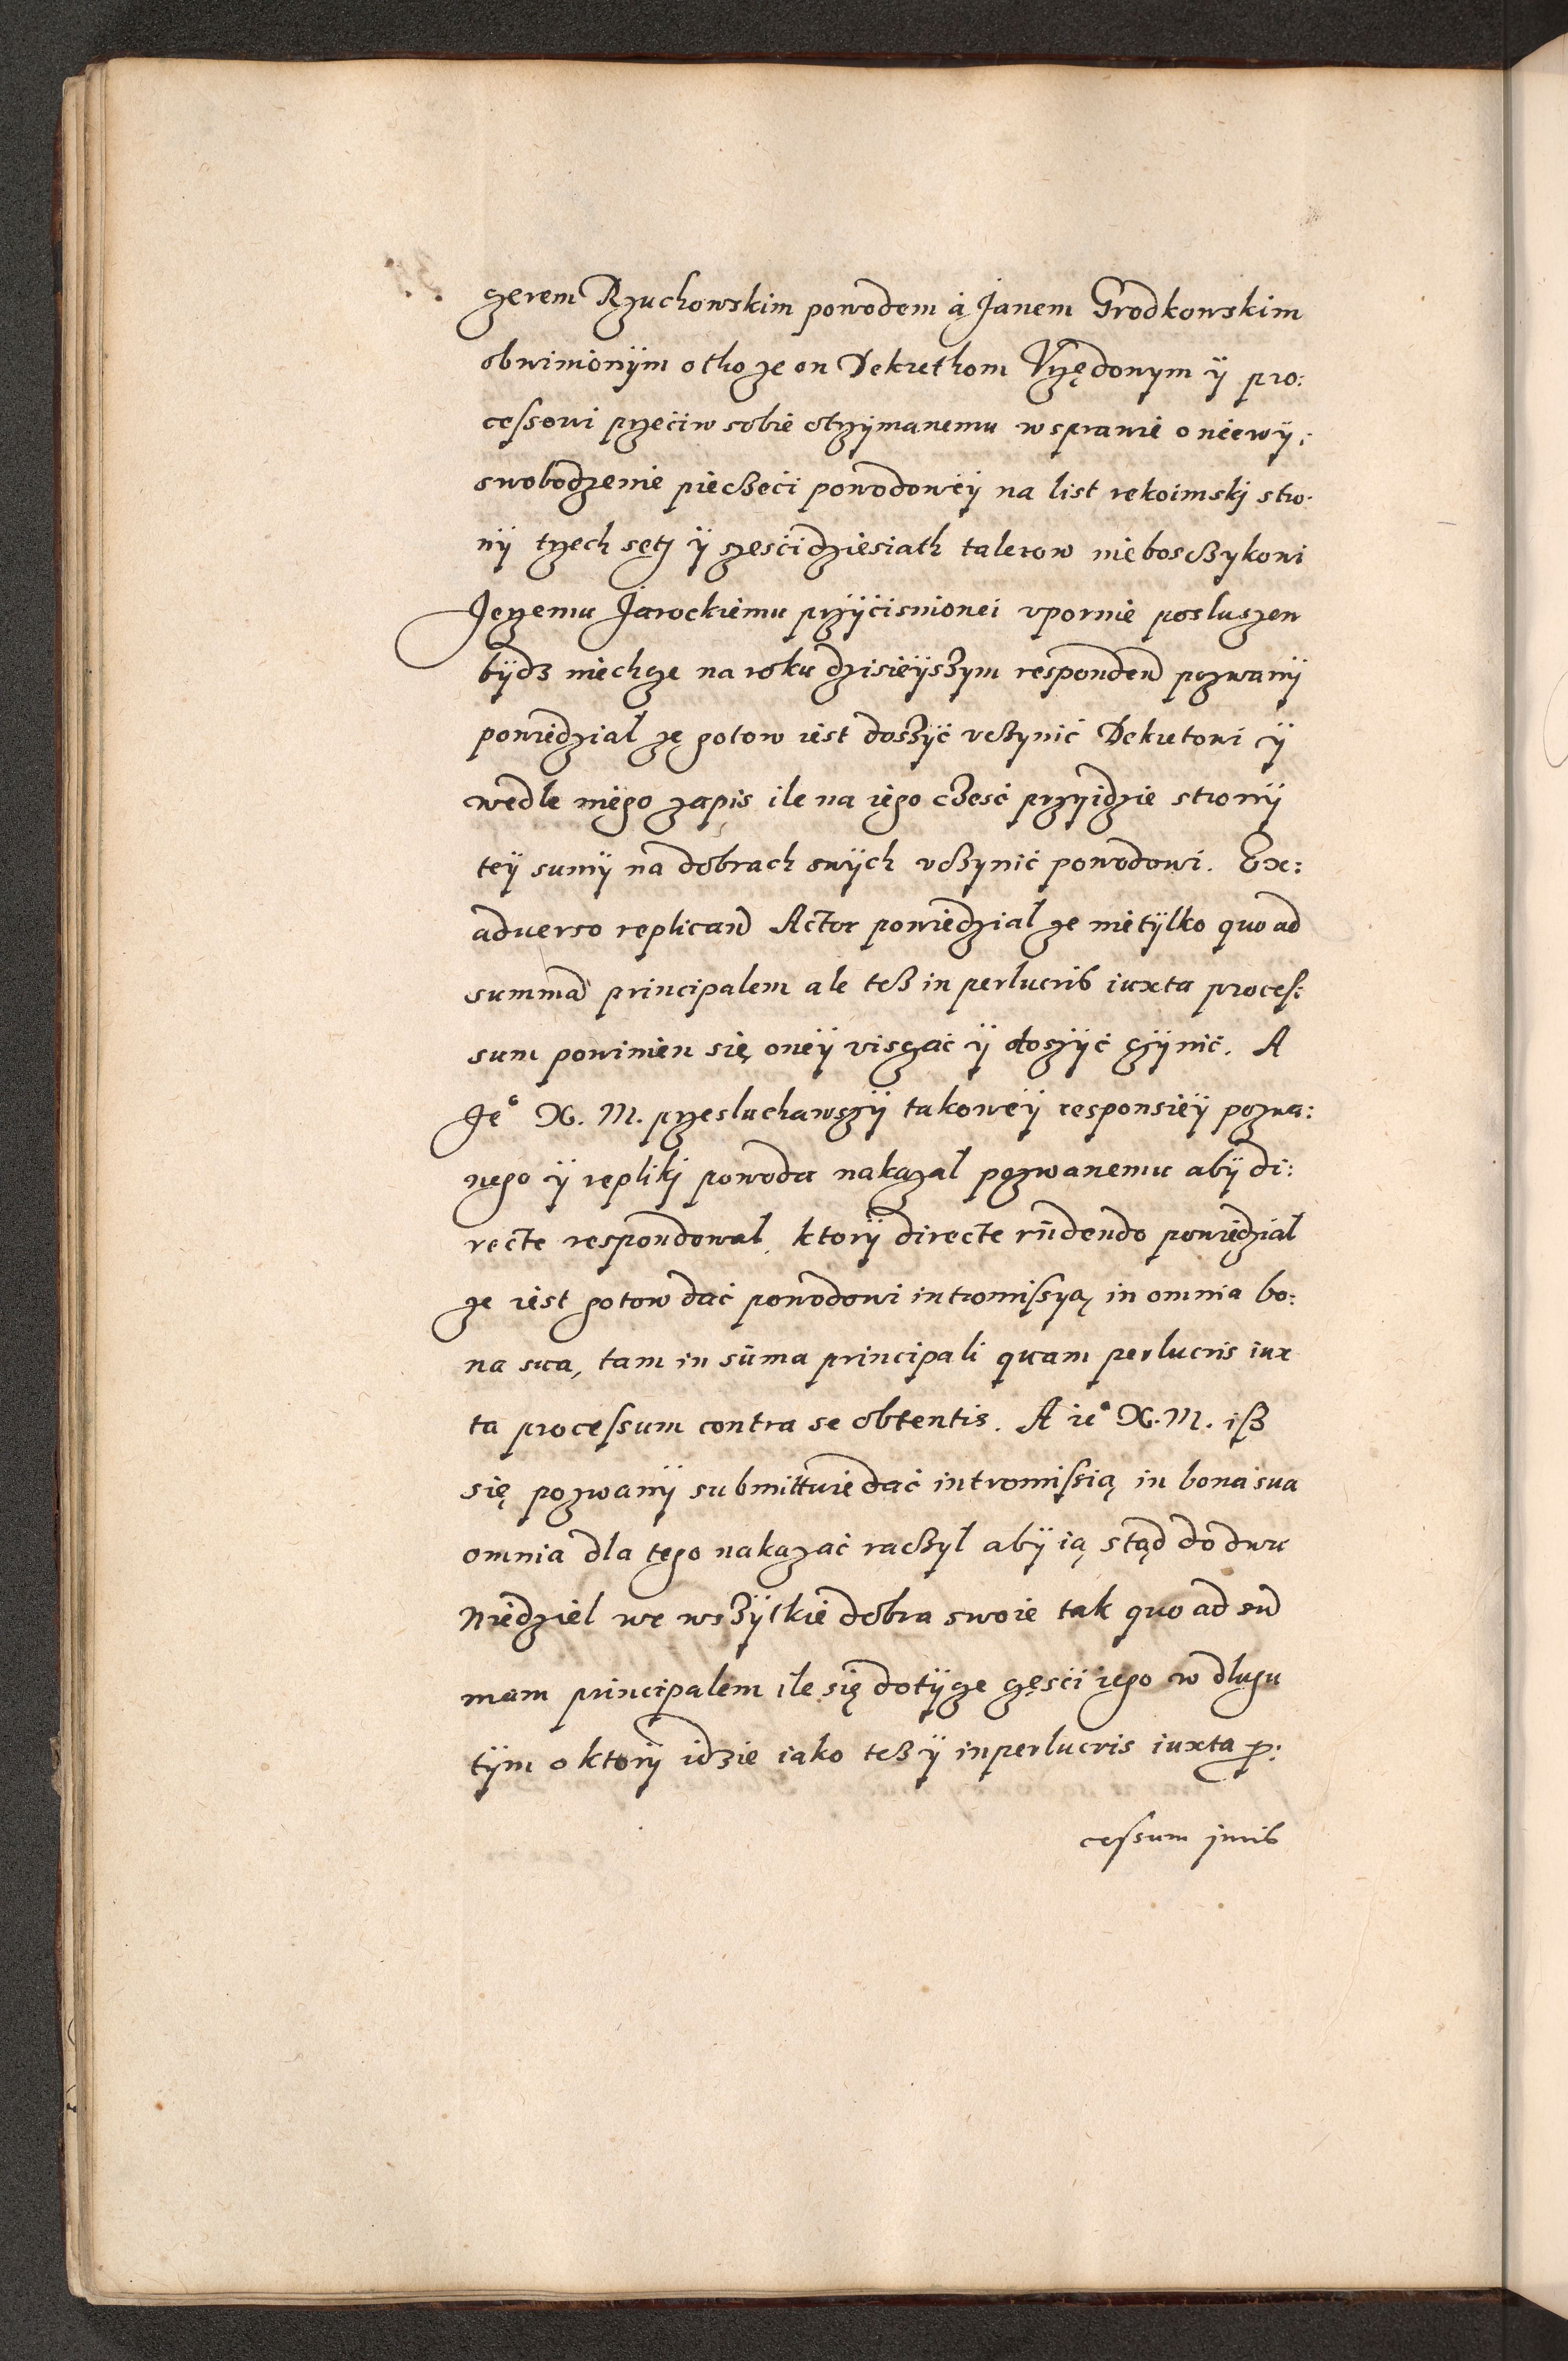 zerem Rzuchowskim powodem à Janem Grodkowskim
obwinionÿm o tho ze on Dekrethom Vrzędonym ÿ pro:
cessowi przećiw sobie otrzÿmanemu w sprawie o niewÿ:
swobodzenie piecżeći powodowëÿ na list rekoimskj stro:
nÿ trzech sętj ÿ szesćidziesiath talerow nieboscżykowi
Jerzemu Jarockiemu przÿćisnionei vpornie posluszen
bÿdz niechze na roku dzisieÿszym responden pozwanÿ
powiedzial ze gotow iest dosżÿć vcżynić Dekretowi ÿ
wedle niego zapis ile na iego cżesć przyidzie stronÿ
teÿ sumÿ na dobrach swÿch vcżynić powodowi. Ex:
aduerso replicand Actor powiedzial ze nietÿlko quo ad
summa principalem ale tesz in perlucris iuxta proces:
sum powinien się oneÿ viszać ÿ doszÿć czÿnić. A
Je° X. M. przesluchawszÿ takoweÿ responsieÿ pozwa:
nego ÿ replikj powoda nakazal pozwanemu abÿ di:
recte respondowal, ktorÿ directe rñdendo powiedzial
ze iest gotow dać powodowi intromissyą in omnia bo:
na sua, tam in sūma principali quam perlucris iux
ta processum contra se obtentis. A ie° X. M. isz
się pozwanÿ submittuie dać intromissią in bona sua
omnia dla tego nakazać racżyl abÿ ią stąd do dwu
Niedziel we wszÿtkie dobra swoie tak quo ad sum
mam principalem ile się dotÿcze częsći iego w dlugu
tÿm o ktorÿ idzie iako tesz ÿ in perlucris iuxta p:
cessum juris